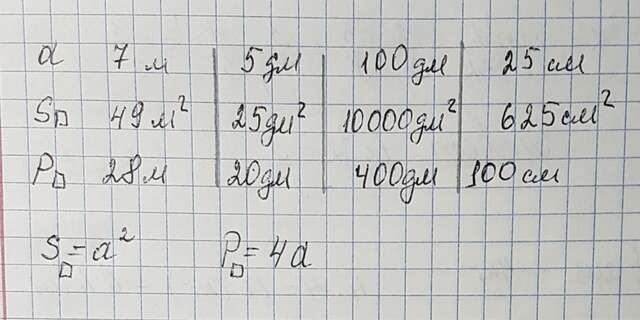 a 7 м | 5 дм | 100 дм | 25 см
S□ 49 м² | 25 дм² | 10000 дм² | 625 см²
P□ 28 м | 20 дм | 400 дм | 100 см
S□ = a² P□ = 4a